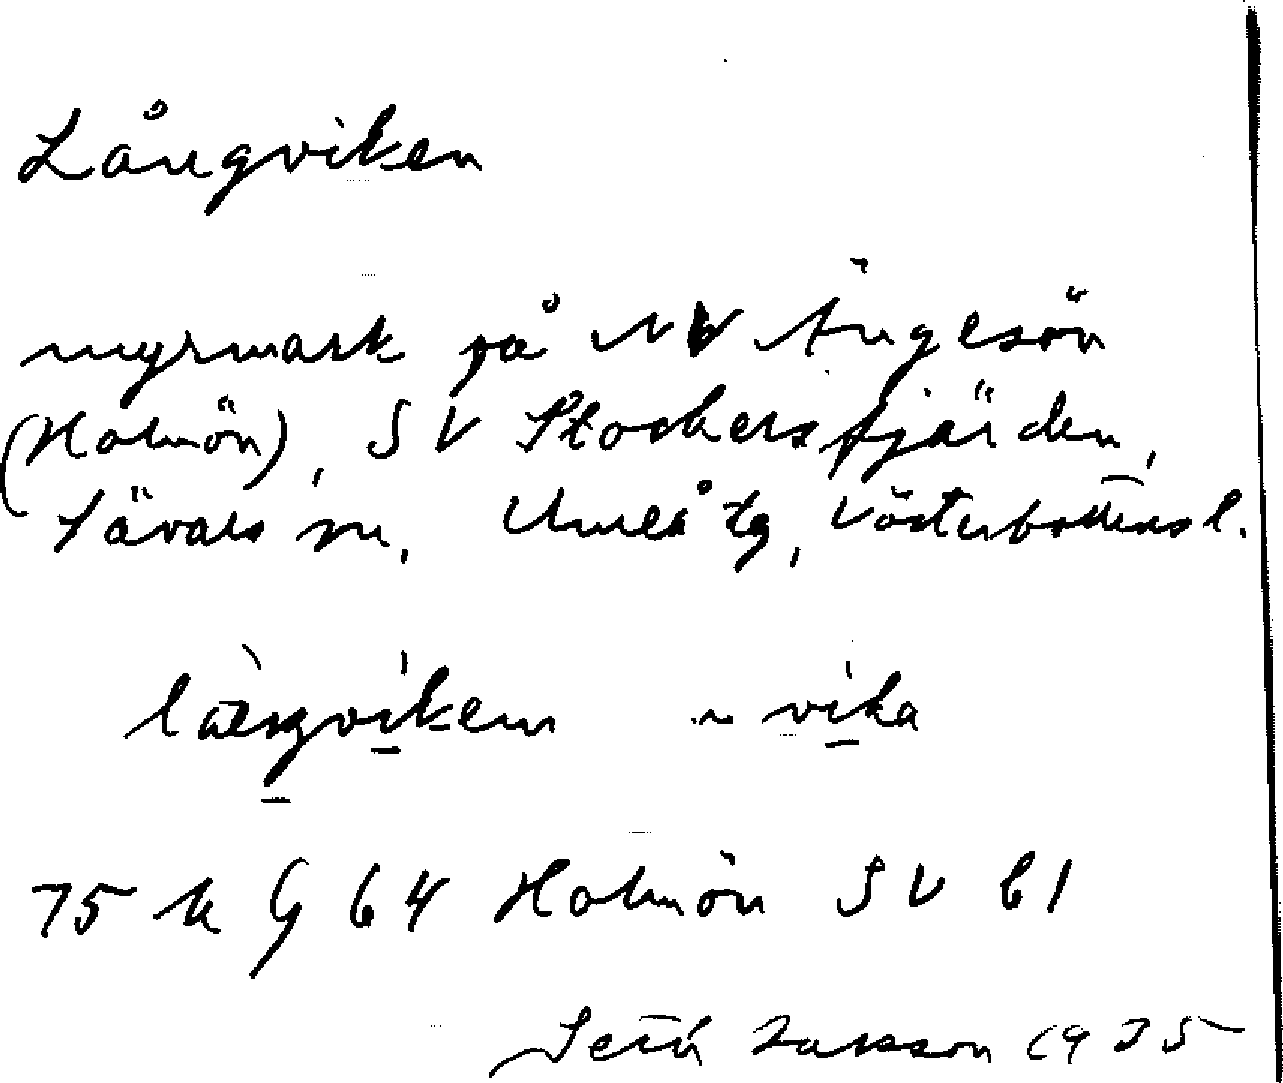 Långviken
myrmark på NV Ängesön
(Holmön), SV Stockersfjärden,
Sävars sn, Umeå tg, Västerbottens l.
~ vika
Holmön SV b1
Seth Jansson 1975